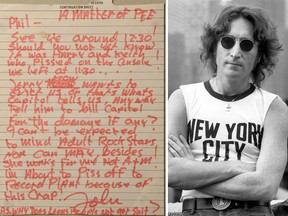 CONTINUATION SHEET
"A MATTER OF PEE"
Phil —
See you around 12:30?
Should you not yet know
it was Harry and Keith
who pissed on the console
we left at 11:30...
Jerry wants to
Capitol tells us. Anyway
tell him to bill Capitol
for the damage if any?
I can't be expected
to mind adult Rock Stars
nor can May besides
she works for me Not A+M
I'm About to Piss off to
Record Plant because of
this Crap!
John
NEW YORK
CITY